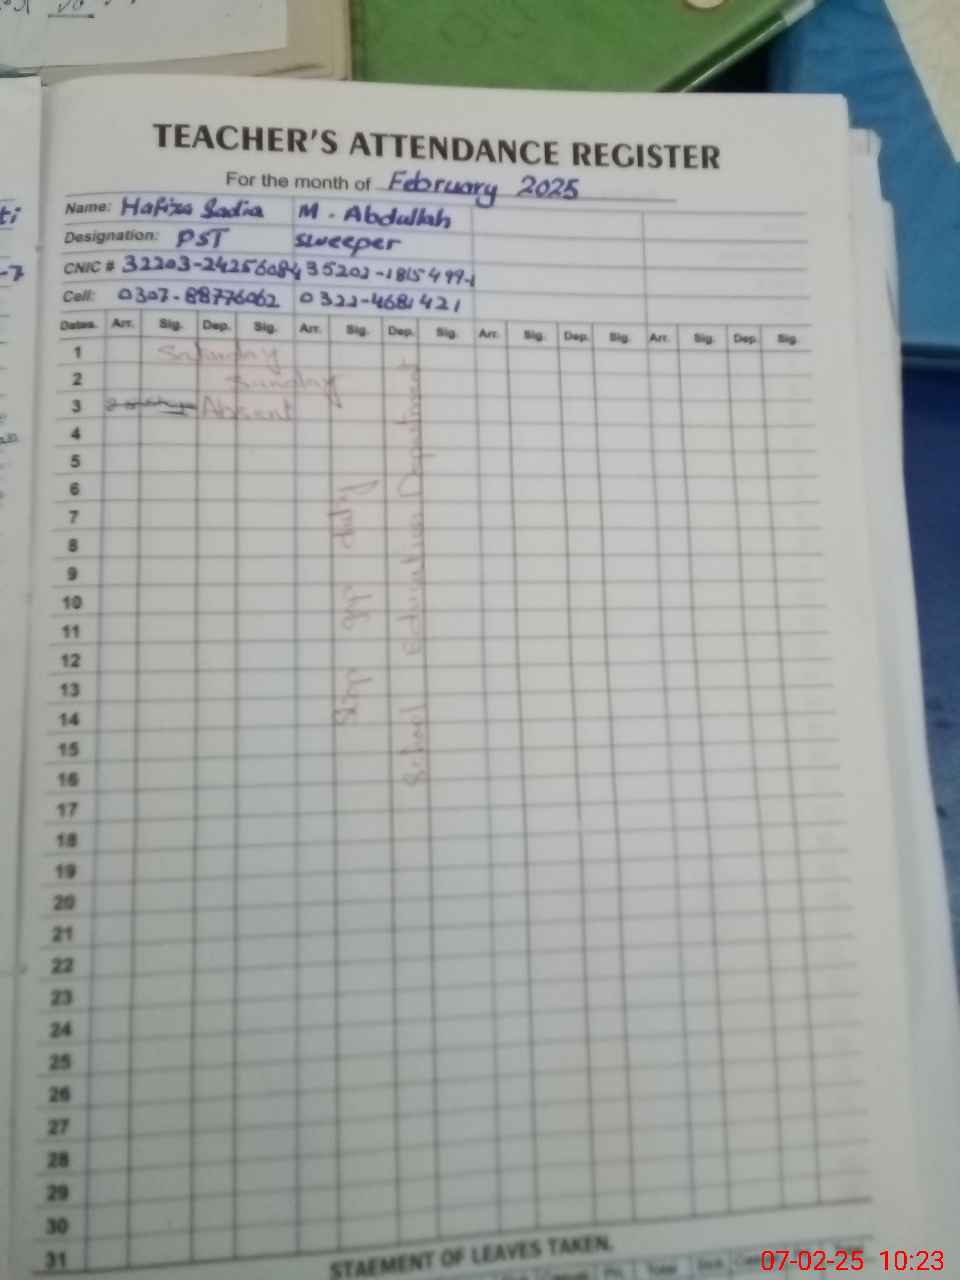 TEACHER'S ATTENDANCE REGISTER
For the month of February 2025
Name: Hafiza Sadia M. Abdullah
Designation: PST sweeper
CNIC # 32203-24256084 35202-1815499-1
Cell: 0307-88776062 0322-4681421
Dates. Arr. Sig. Dep. Sig. Arr. Sig. Dep. Sig. Arr. Sig. Dep. Sig. Arr. Sig. Dep. Sig.
1 Saturday
2 Sunday
3 Absent
4
5
6
7
8
9
10
11
12
13
14
15
16
17
18
19
20
21
22
23
24
25
26
27
28
29
30
31
School Education Department
STAEMENT OF LEAVES TAKEN.
07-02-25 10:23
ti
-7